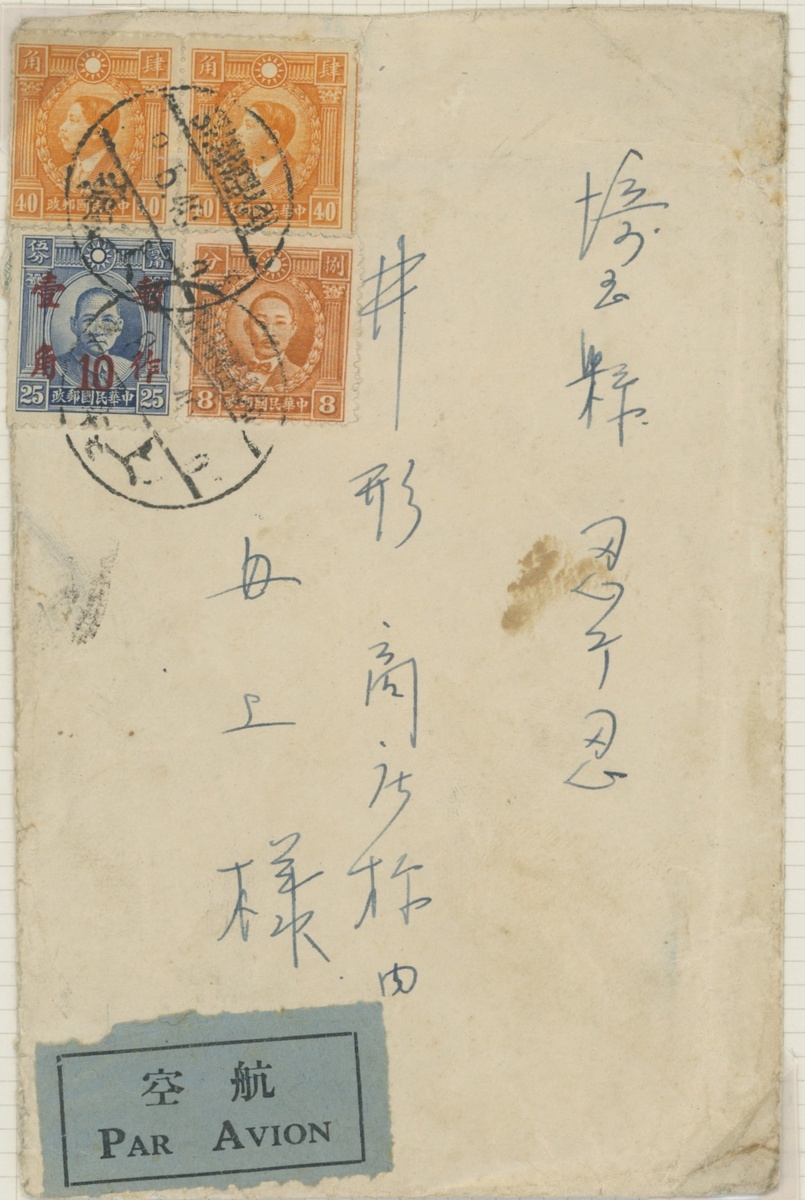 肆角
40 中華民國郵政 40
肆角
40 中華民國郵政 40
貳角伍分
暫作
壹角
10
25 中華民國郵政 25
捌分
8 中華民國郵政 8
SHANGHAI
埼玉縣 忍町忍
井形商店様内
母上様
航空
PAR AVION